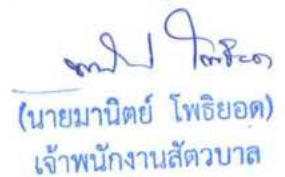 (นายมานิตย์ โพธิยอด)
เจ้าพนักงานสัตวบาล